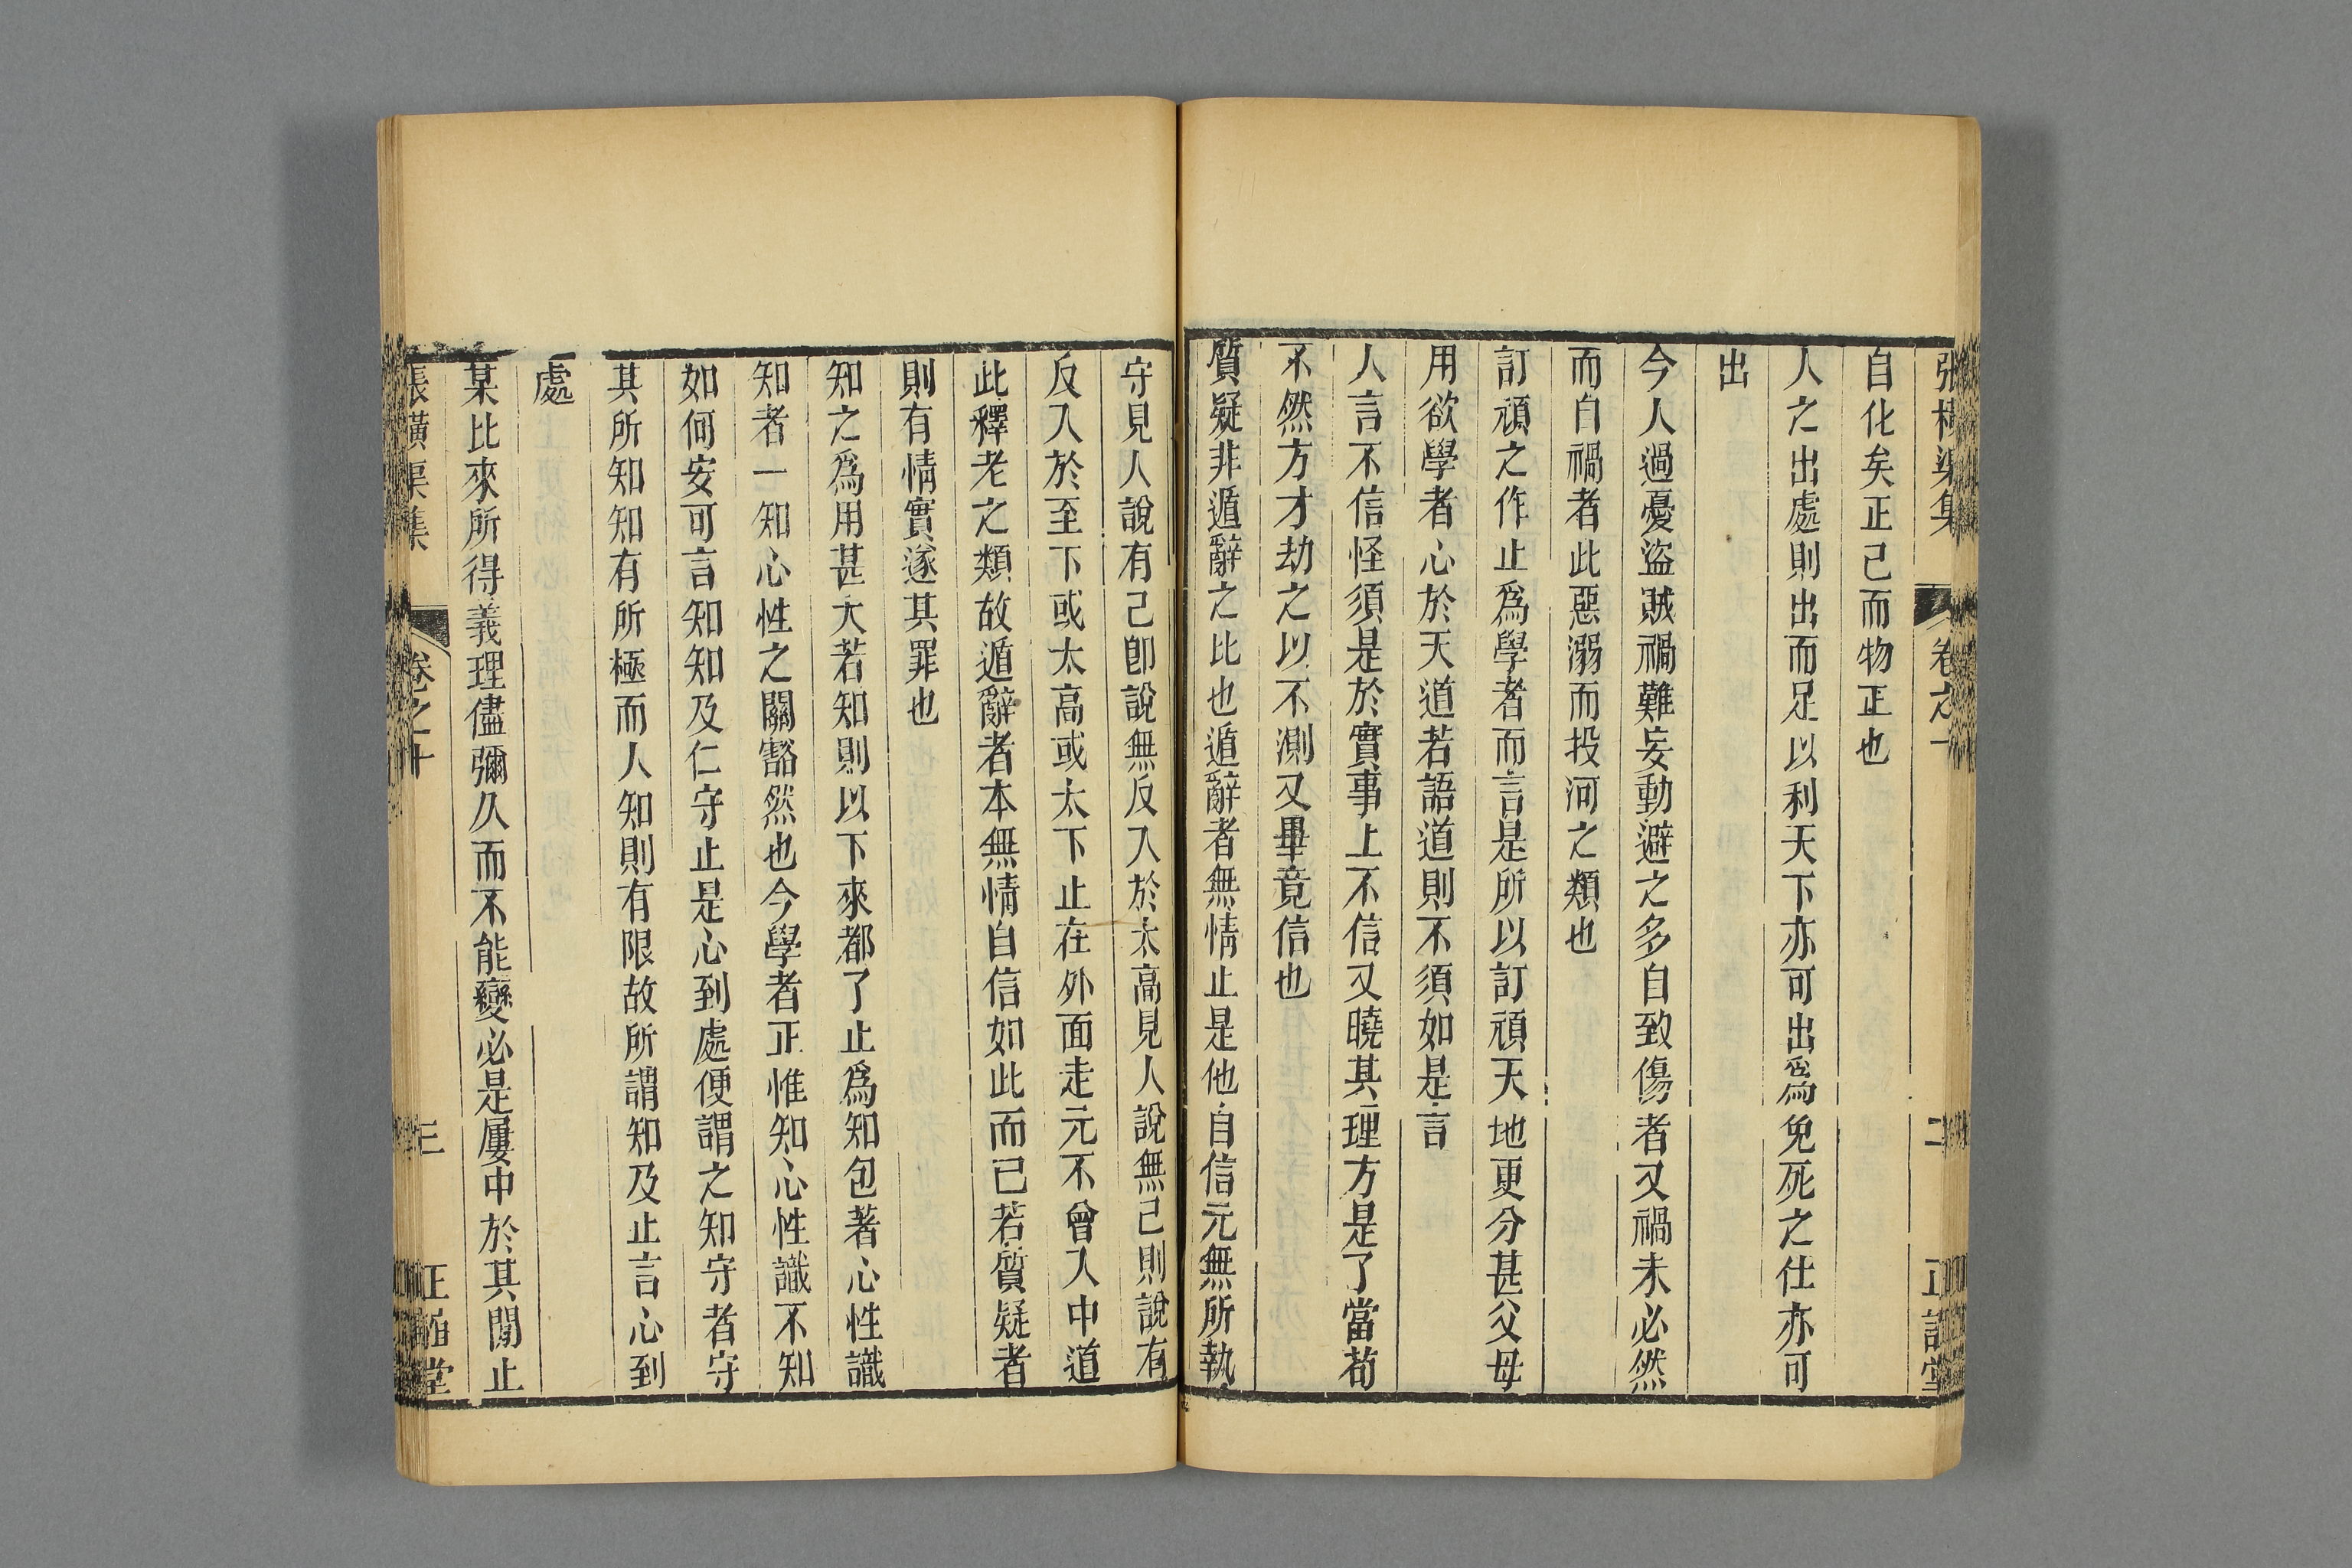 張橫渠集 卷之十 二 正誼堂
自化矣正己而物正也
人之出處則出而足以利天下亦可出爲免死之仕亦可
出
今人過憂盜賊禍難妄動避之多自致傷者又禍未必然
而自禍者此惡溺而投河之類也
訂頑之作止爲學者而言是所以訂頑天地更分甚父母
用欲學者心於天道若語道則不須如是言
人言不信怪須是於實事上不信又曉其理方是了當苟
不然方才劫之以不測又畢竟信也
質疑非遁辭之比也遁辭者無情止是他自信元無所執
守見人說有己卽說無反入於太高見人說無己則說有
反入於至下或太高或太下止在外面走元不曾入中道
此釋老之類故遁辭者本無情自信如此而已若質疑者
則有情實遂其罪也
知之爲用甚大若知則以下來都了止爲知包著心性識
知者一知心性之關豁然也今學者正惟知心性識不知
如何安可言知知及仁守止是心到處便謂之知守者守
其所知知有所極而人知則有限故所謂知及止言心到
處
某比來所得義理儘彌久而不能變必是屢中於其閒止
張橫渠集 卷之十 三 正誼堂